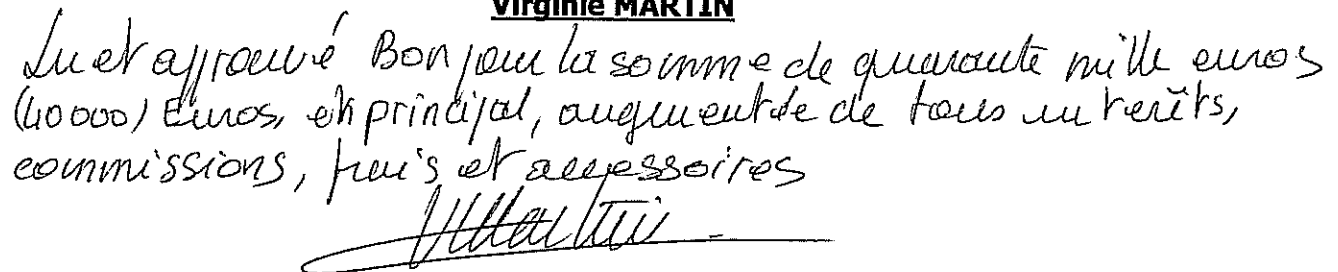 Virginie MARTIN
Lu et approuvé Bon pour la somme de quarante mille euros
(40000) Euros, en principal, augmentée de tous intérêts,
commissions, frais et accessoires
VMartin